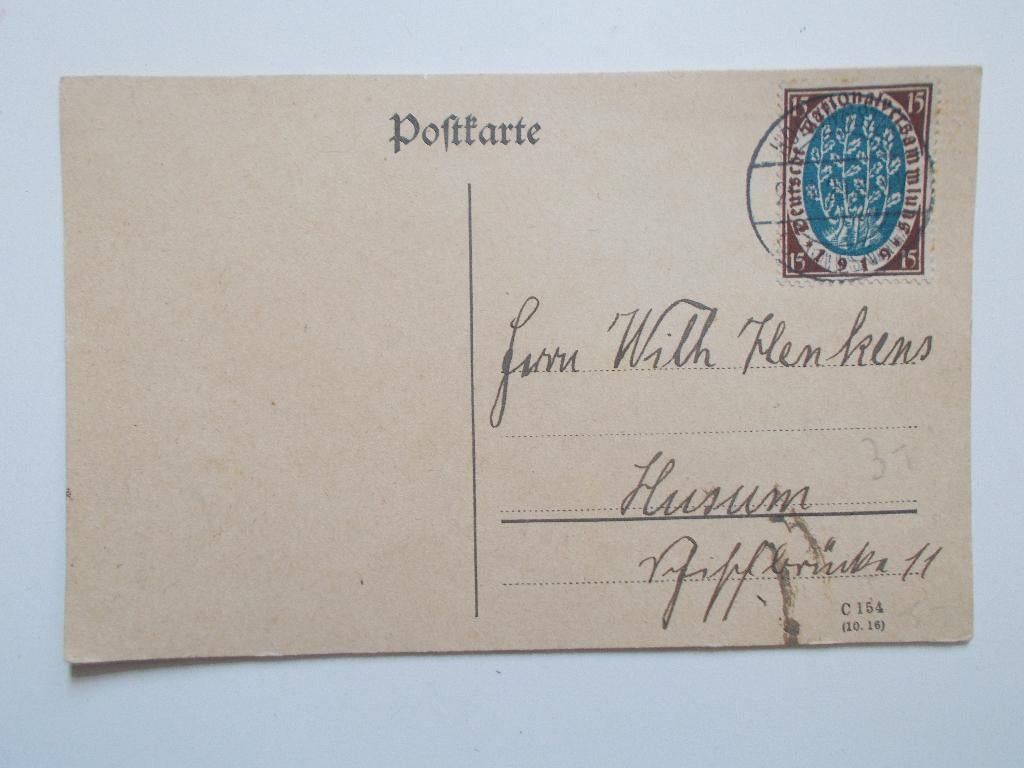 Postkarte
15 15
Deutsche Nationalversammlung
* 1919 *
15 15
Herrn Wilh Henkens
Husum
Schiffbrücke 11
C 154
(10. 16)